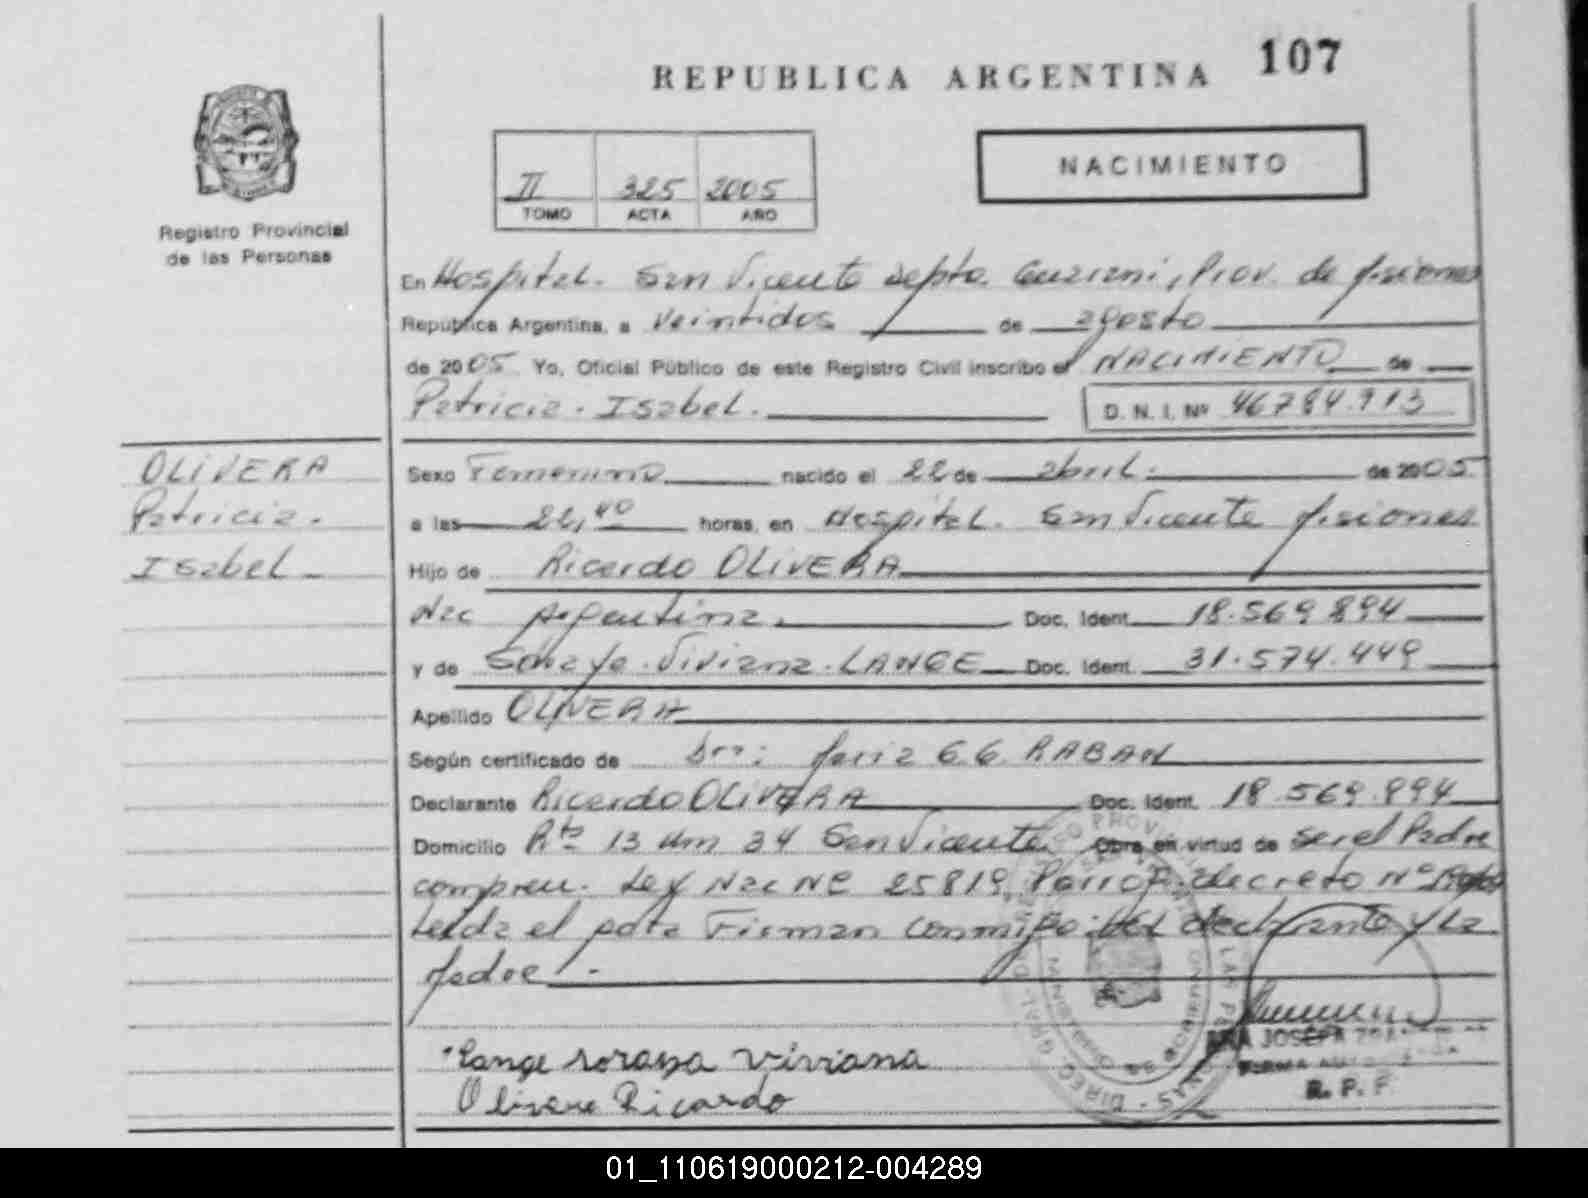 107
REPUBLICA ARGENTINA
NACIMIENTO
II 325 2005
TOMO ACTA AÑO
Registro Provincial
de las Personas
En Hospital. San Vicente Depto. Guarani, Prov. de Misiones
República Argentina, a Veintidos de agosto
de 2005 Yo, Oficial Público de este Registro Civil inscribo el NACIMIENTO de
Patricia. Isabel.
D. N. I. Nº 46784.913
OLIVERA
Patricia.
Isabel
Sexo Femenino nacido el 22 de abril. de 2005
a las 22,40 horas, en Hospital. San Vicente Misiones
Hijo de Ricardo OLIVERA
Nac Argentina. Doc. Ident. 18.569 894
y de Soraya. Viviana. LANGE Doc. Ident. 31.574.449
Apellido OLIVERA
Según certificado de Dra: Maria G.G. RABAN
Declarante Ricardo OLIVERA Doc. Ident. 18.569.894
Domicilio Rta 13 Km 34 San Vicente Obra en virtud de ser el Padre
Ley Nac Nº 25819 decreto Nº
Leida el acta Firman conmigo. del declarante y La
Madre.-
Lange soraya viviana
Olivera Ricardo
ANA JOSEFA
R. P. F.
01_110619000212-004289